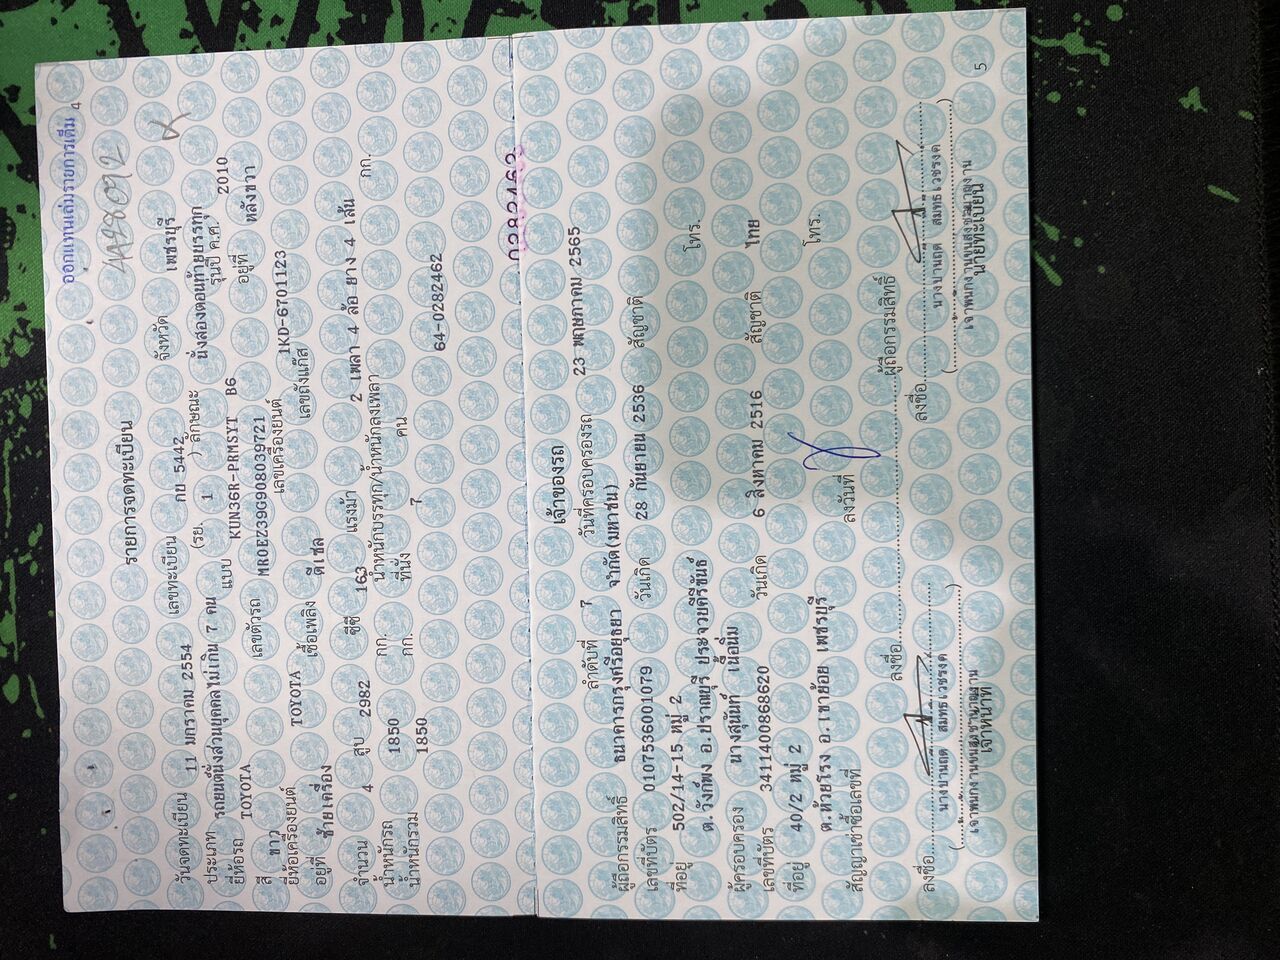 ออกแทนเล่มรายการเต็ม 4
รายการจดทะเบียน
วันจดทะเบียน 11 มกราคม 2554 เลขทะเบียน กข 5442 จังหวัด เพชรบุรี
ประเภท รถยนต์นั่งส่วนบุคคลไม่เกิน 7 คน (รย. 1 ) ลักษณะ นั่งสองตอนท้ายบรรทุก
ยี่ห้อรถ TOYOTA แบบ KUN36R-PRMSYT B6 รุ่นปี ค.ศ. 2010
สี ขาว เลขตัวรถ MR0EZ39G908039721 อยู่ที่ หลังขวา
ยี่ห้อเครื่องยนต์ TOYOTA เลขเครื่องยนต์ 1KD-6701123
อยู่ที่ ซ้ายเครื่อง เชื้อเพลิง ดีเซล เลขถังแก๊ส
จำนวน 4 สูบ 2982 ซีซี 163 แรงม้า 2 เพลา 4 ล้อ ยาง 4 เส้น
น้ำหนักรถ 1850 กก. น้ำหนักบรรทุก/น้ำหนักลงเพลา กก.
น้ำหนักรวม 1850 กก. ที่นั่ง 7 คน
64-0282462
เจ้าของรถ
ลำดับที่ 7 วันที่ครอบครองรถ 23 พฤษภาคม 2565
ผู้ถือกรรมสิทธิ์ ธนาคารกรุงศรีอยุธยา จำกัด(มหาชน)
เลขที่บัตร 0107536001079 วันเกิด 28 กันยายน 2536 สัญชาติ
ที่อยู่ 502/14-15 หมู่ 2
ต.วังก์พง อ.ปราณบุรี ประจวบคีรีขันธ์ โทร.
ผู้ครอบครอง นางสุนันท์ เนื้อนิ่ม
เลขที่บัตร 3411400868620 วันเกิด 6 สิงหาคม 2516 สัญชาติ ไทย
ที่อยู่ 40/2 หมู่ 2
ต.ห้วยโรง อ.เขาย้อย เพชรบุรี โทร.
สัญญาเช่าซื้อเลขที่ ลงวันที่
ลงชื่อ ผู้ถือกรรมสิทธิ์
ลงชื่อ ลงชื่อ
เจ้าหน้าที่ นายทะเบียน
5